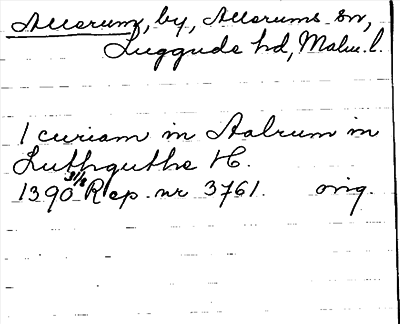 Allarum, by, Allerums sn,
Luggude hd, Malm. l.
1 curiam in Aalrum in
Luthguthe H.
1390 31/8 Rep. nr 3761. orig.